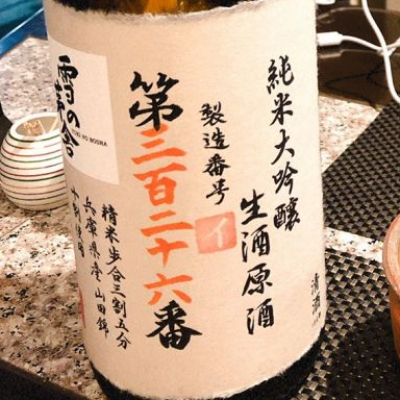 純米大吟醸
生酒原酒
清酒
製造番号
イ
第三百二十六番
雪の茅舎
YUKI NO BOSHA
精米歩合三割五分
兵庫県産山田錦
十割使用